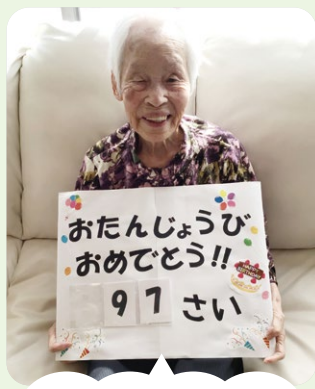 おたんじょうび
おめでとう!!
97さい